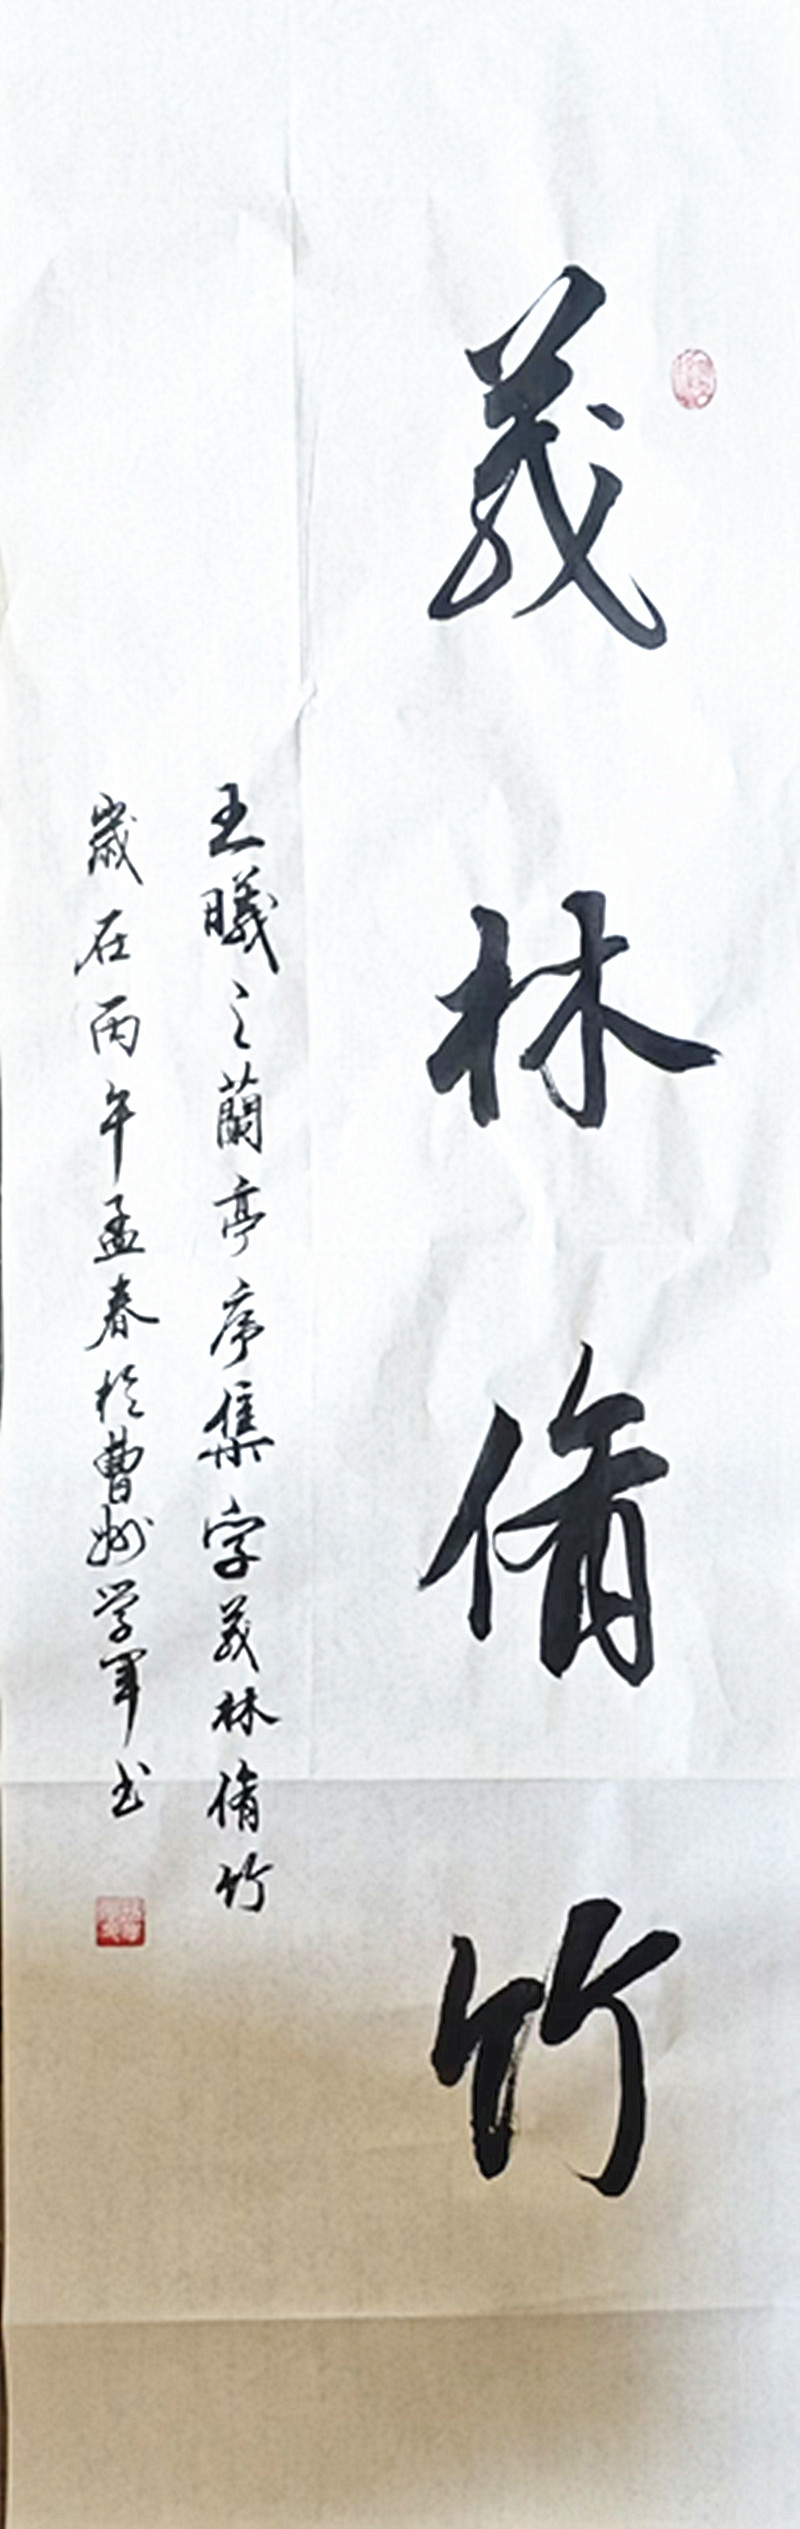 義林脩竹
王曦之蘭亭序集字義林脩竹
歲在丙午孟春於曹州学軍书